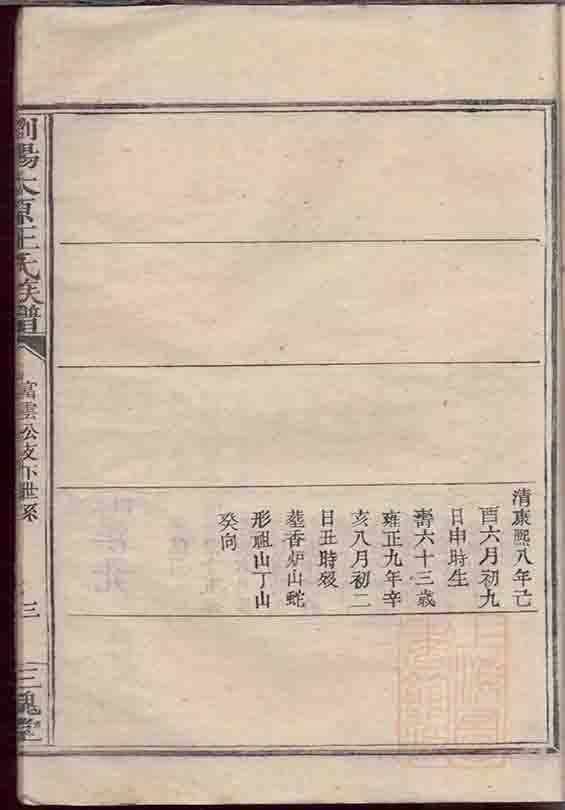 清康熙八年己
酉六月初九
日申時生
壽六十三歲
雍正九年辛
亥八月初二
日丑時歿
塟香炉山蛇
形祖山丁山
癸向
劉陽太原王氏族譜
富雲公支下世系
三
三槐堂